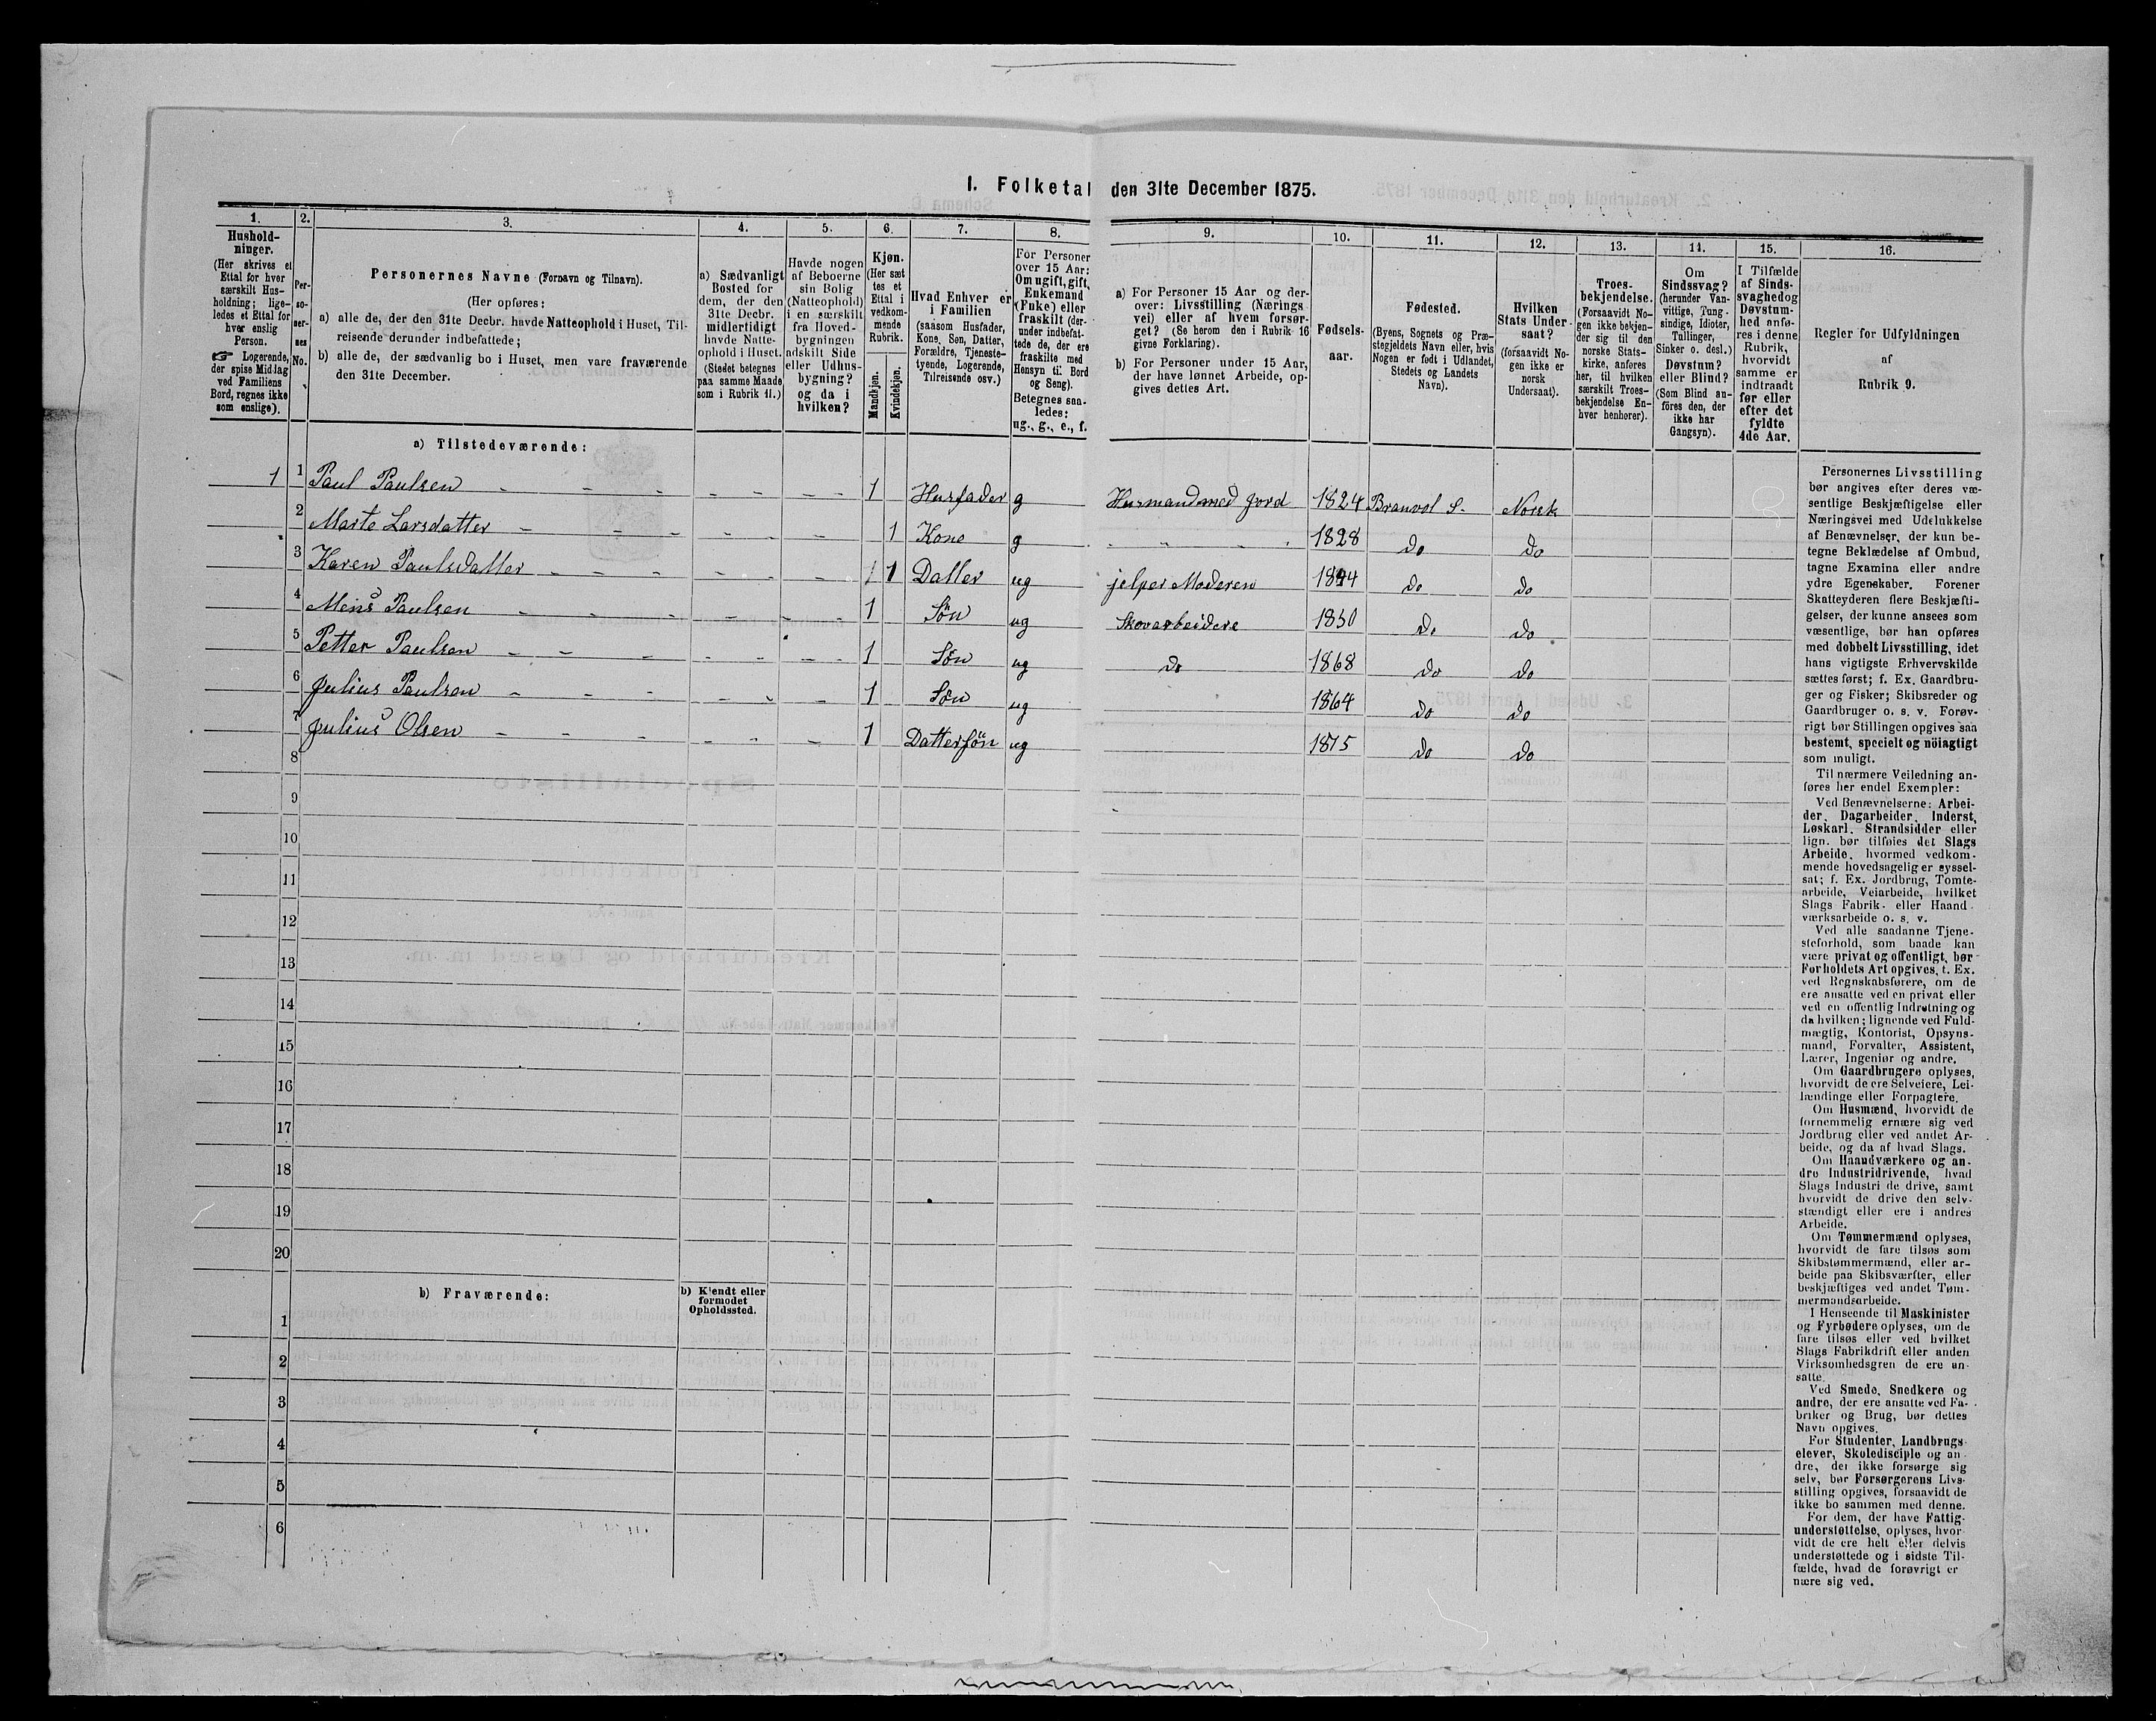 I. Folketal den 31te December 1875.
1. 2. 3. 4. 5. 6. 7. 8. 9. 10. 11. 12. 13. 14. 15. 16.
Hushold-
ninger.
(Her skrives et
Ettal for hver
særskilt Hus-
holdning; lige-
ledes et Ettal for
hver enslig
Person.
☞ Logerende,
der spise Middag
ved Familiens
Bord, regnes ikke
som enslige).
Per-
so-
ner-
nes
No.
Personernes Navne (Fornavn og Tilnavn).
(Her opføres:
a) alle de, der den 31te Decbr. havde Natteophold i Huset, Til-
reisende derunder indbefattede;
b) alle de, der sædvanlig bo i Huset, men vare fraværende
den 31te December.
a) Sædvanligt
Bosted for
dem, der den
31te Decbr.
midlertidigt
havde Natte-
ophold i Huset.
(Stedet betegnes
paa samme Maade
som i Rubrik 11.)
Havde nogen
af Beboerne
sin Bolig
(Natteophold)
i en særskilt
fra Hoved-
bygningen
adskilt Side
eller Udhus-
bygning?
og da i
hvilken?
Kjøn.
(Her sæt
tes et
Ettal i
vedkom-
mende
Rubrik.
Mandkjøn.
Kvindekjøn.
Hvad Enhver er
i Familien
(saasom Husfader,
Kone, Søn, Datter,
Forældre, Tjeneste-
tyende, Logerende,
Tilreisende osv.)
For Personer
over 15 Aar:
Om ugift, gift,
Enkemand
(Enke) eller
fraskilt (der-
under indbefat-
tede de, der ere
fraskilte med
Hensyn til Bord
og Seng).
Betegnes saa-
ledes:
ug., g., e., f.
a) For Personer 15 Aar og der-
over: Livsstilling (Nærings
vei) eller af hvem forsør-
get? (Se herom den i Rubrik 16
givne Forklaring).
b) For Personer under 15 Aar,
der have lønnet Arbeide, op-
gives dettes Art.
Fødsels-
aar.
Fødested.
(Byens, Sognets og Præ-
stegjeldets Navn eller, hvis
Nogen er født i Udlandet,
Stedets og Landets
Navn).
Hvilken
Stats Under-
saat?
(forsaavidt No-
gen ikke er
norsk
Undersaat).
Troes-
bekjendelse.
(Forsaavidt No-
gen ikke bekjen-
der sig til den
norske Stats-
kirke, anføres
her, til hvilken
særskilt Troes-
bekjendelse En-
hver henhører).
Om
Sindssvag?
(herunder Van-
vittige, Tung-
sindige, Idioter,
Tullinger,
Sinker o. desl.)
Døvstum?
eller Blind?
(Som Blind an-
föres den, der
ikke har
Gangsyn).
I Tilfælde
af Sinds-
svaghed og
Døvstum-
hed anfø-
res i denne
Rubrik,
hvorvidt
samme er
indtraadt
før eller
efter det
fyldte
4de Aar.
Regler for Udfyldningen
af
Rubrik 9.
a) Tilstedeværende:
1 1 Paul Paulsen 1 Husfader g Husmand med Jord 1824 Branvol S. Norsk
2 Marte Larsdatter 1 Kone g 1828 do do
3 Karen Paulsdatter 1 Datter ug jelper Moderen do do
4 Mens Paulsen 1 Søn ug Skovarbeidere 1850 do do
5 Petter Paulsen 1 Søn ug do 1868 do do
6 Julius Paulsen 1 Søn ug 1864 do do
7 Julius Olsen 1 Dattersøn ug 1875 do do
8
9
10
11
12
13
14
15
16
17
18
19
20
b) Fraværende:
b) Kjendt eller
formodet
Opholdssted.
1
2
3
4
5
6
Personernes Livsstilling
bør angives efter deres væ-
sentlige Beskjæftigelse eller
Næringsvei med Udelukkelse
af Benævnelser, der kun be-
tegne Beklædelse af Ombud,
tagne Examina eller andre
ydre Egenskaber. Forener
Skatteyderen flere Beskjæfti-
gelser, der kunne ansees som
væsentlige, bør han opføres
med dobbelt Livsstilling, idet
hans vigtigste Erhvervskilde
sættes først; f. Ex. Gaardbru-
ger og Fisker; Skibsreder og
Gaardbruger o. s. v. Forøv-
rigt bør Stillingen opgives saa
bestemt, specielt og nöiagtigt
som muligt.
Til nærmere Veiledning an-
føres her endel Exempler:
Ved Benævnelserne: Arbei-
der, Dagarbeider, Inderst,
Løskarl, Strandsidder eller
lign. bør tilføies det Slags
Arbeide, hvormed vedkom-
mende hovedsagelig er syssel-
sat; f. Ex. Jordbrug, Tomte-
arbeide, Veiarbeide, hvilket
Slags Fabrik- eller Haand-
værksarbeide o. s. v.
Ved alle saadanne Tjene-
steforhold, som baade kan
være privat og offentligt, bør
Forholdets Art opgives, t. Ex.
ved Regnskabsførere, om de
ere ansatte ved en privat eller
ved en offentlig Indretning og
da hvilken; lignende ved Fuld-
mægtig, Kontorist, Opsyns-
mand, Forvalter, Assistent,
Lærer, Ingeniør og andre.
Om Gaardbrugere oplyses,
hvorvidt de ere Selveiere, Lei-
lændinge eller Forpagtere.
Om Husmænd, hvorvidt de
fornemmelig ernære sig ved
Jordbrug eller ved andet Ar-
beide, og da af hvad Slags.
Om Haandværkere og an-
dre Industridrivende, hvad
Slags Industri de drive, samt
hvorvidt de drive den selv-
stændigt eller ere i andres
Arbeide.
Om Tømmermænd oplyses,
hvorvidt de fare tilsøs som
Skibstømmermænd, eller ar-
beide paa Skibsværfter, eller
beskjæftiges ved andet Tøm-
mermandsarbeide.
I Henseende til Maskinister
og Fyrbødere oplyses, om de
fare tilsøs eller ved hvilket
Slags Fabrikdrift eller anden
Virksomhedsgren de ere an-
satte.
Ved Smede, Snedkere og
andre, der ere ansatte ved Fa-
briker og Brug, bør dettes
Navn opgives.
For Studenter, Landbrugs-
elever, Skoledisciple og an-
dre, der ikke forsørge sig
selv, bør Forsørgerens Livs-
stilling opgives, forsaavidt de
ikke bo sammen med denne.
For dem, der have Fattig-
understøttelse, oplyses, hvor-
vidt de ere helt eller delvis
understøttede og i sidste Til-
fælde, hvad de forøvrigt er
nære sig ved.